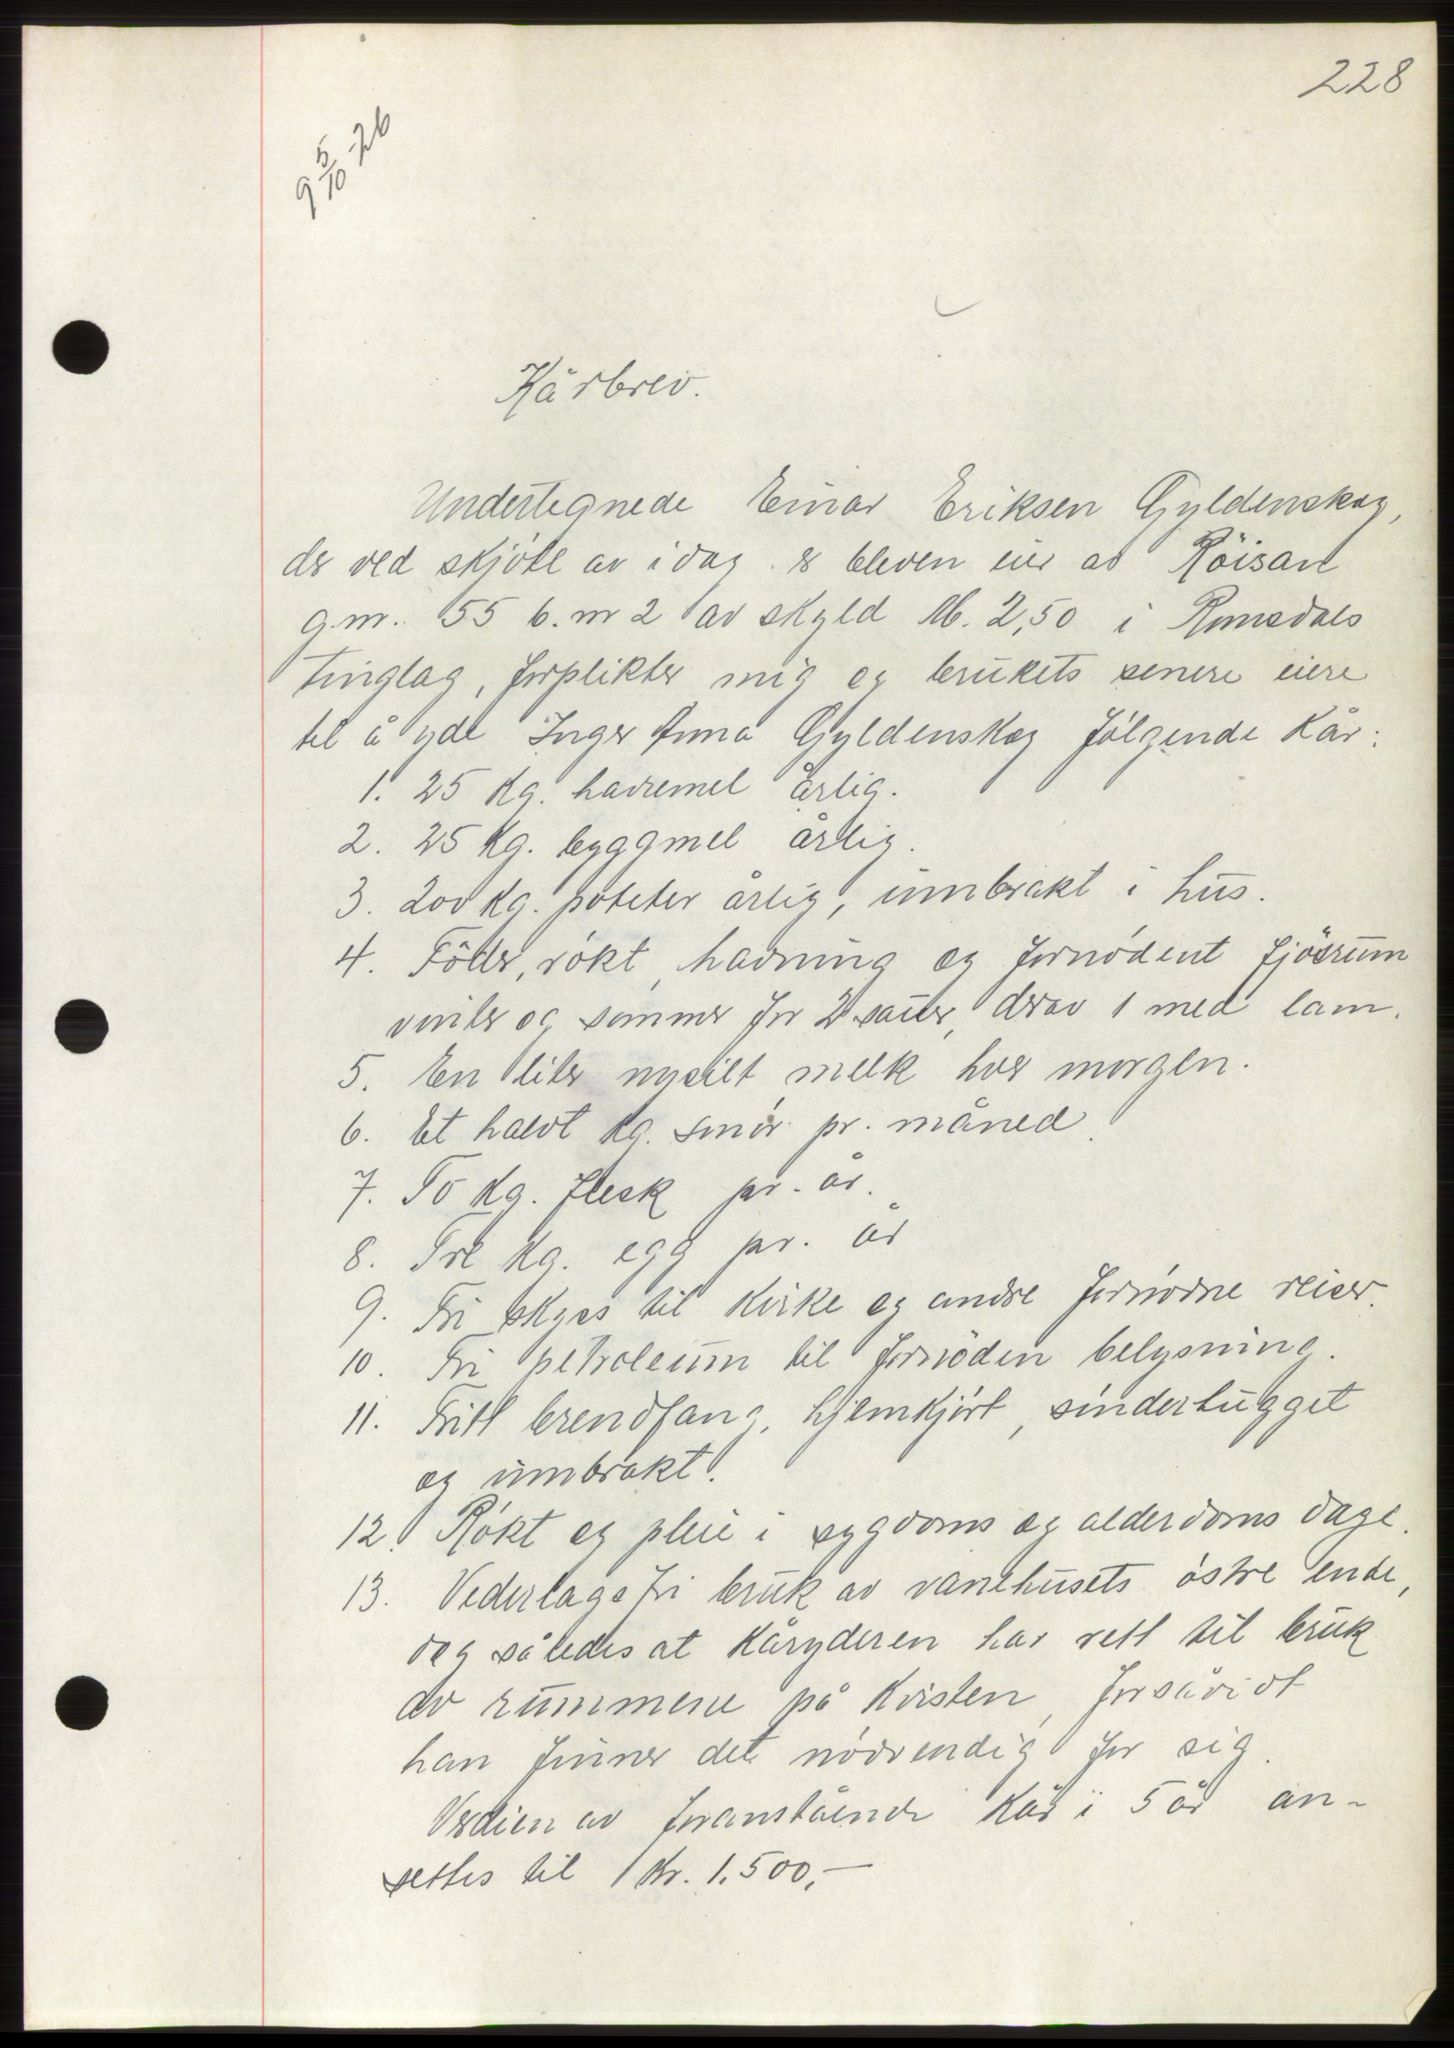 228
9 5/10-26
Kårbrev.
Undertegnede Einar Eriksen Gyldenskog,
der ved skjöte av idag er bleven eier av Röisan
g.nr. 55 b.nr 2 av skyld M. 2,50 i Romsdals
tinglag, forplikter mig og brukets senere eiere
til å yde Inger Anna Gyldenskog fölgende kår:
1. 25 kg. havremel årlig.
2. 25 kg. byggmel årlig.
3. 200 kg. poteter årlig, innbrakt i hus.
4. Fôder, rökt, havning og fornödent fjösrum
vinter og sommer for 2 sauer, derav 1 med lam.
5. En liter nysilt melk hver morgen.
6. Et halvt kg. smör pr. måned.
7. To kg. flesk pr. år.
8. Tre kg. egg pr. år
9. Fri skyss til kirke og andre fornödne reiser.
10. Fri petroleum til fornöden belysning.
11. Fritt brendfang, hjemkjört, sönderhugget
og innbrakt.
12. Rökt og pleie i sygdoms og alderdoms dage.
13. Vederlagsfri bruk av vånehusets östre ende,
dog således at kåryderen har rett til bruk
av rummene på kvisten, forsåvidt
han finner det nödvendig for sig.
Verdien av foranstående kår i 5 år an-
settes til kr. 1.500,-